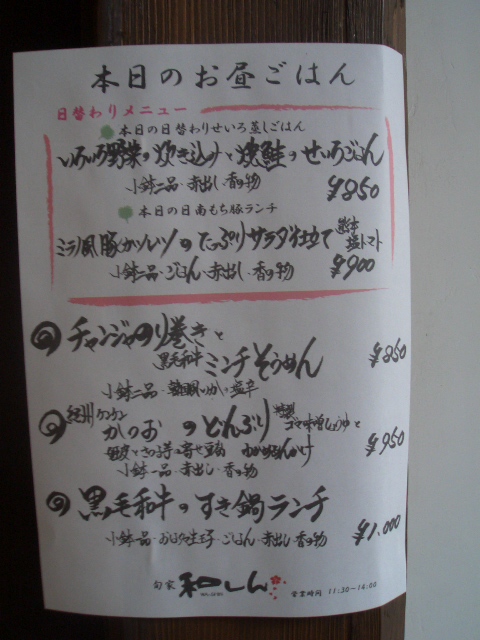 本日のお昼ごはん
日替わりメニュー
本日の日替わりせいろ蒸しごはん
いろいろ野菜の炊き込みと焼鮭のせいろごはん
小鉢二品・赤出し・香の物 ¥850
本日の日南もち豚ランチ
ミラノ風豚カツレツのたっぷりサラダ仕立て 熊本塩トマト
小鉢二品・ごはん・赤出し・香の物 ¥900
チャンジャのり巻きと
黒毛和牛ミンチそうめん ¥850
小鉢二品・韓国いか塩辛
紀州 かつおのどんぶり 特製ゴマ味噌しょうゆと
¥950
小鉢一品・赤出し・香の物
黒毛和牛のすき鍋ランチ
小鉢一品・ごはん・赤出し・香の物 ¥1,000
旬家 和しん 営業時間 11:30~14:00